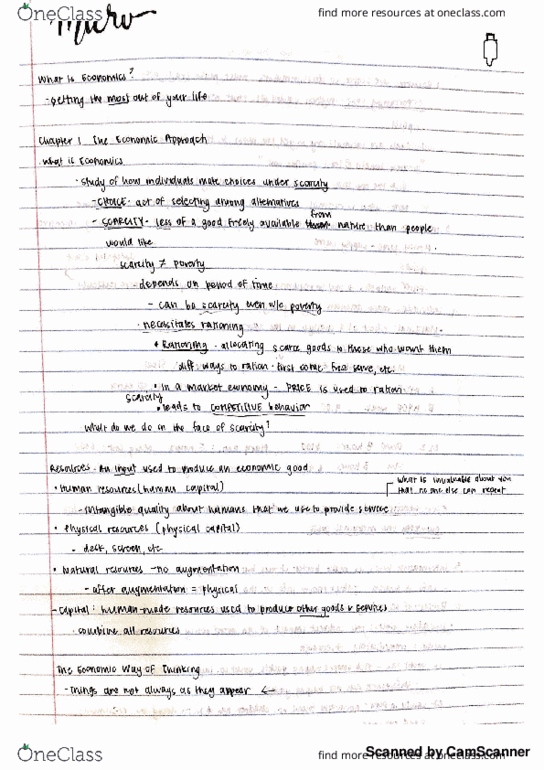 OneClass
find more resources at oneclass.com
Micro
What is Economics?
- getting the most out of your life
Chapter 1 The Economic Approach
What is Economics
- study of how individuals make choices under scarcity
- CHOICE - act of selecting among alternatives
from
- SCARCITY - less of a good freely available nature than people
would like
scarcity ≠ poverty
- depends on period of time
- can be scarcity even w/o poverty
- necessitates rationing
* Rationing - allocating scarce goods to those who want them
diff. ways to ration - first come first serve, etc.
• in a market economy - PRICE is used to ration
scarcity
• leads to COMPETITIVE behavior
What do we do in the face of scarcity?
Resources - An input used to produce an economic good
What is invaluable about you
• human resources (human capital)
that no one else can repeat
- intangible quality about humans that we use to provide service
• physical resources (physical capital)
- desk, screen, etc
• Natural resources - no augmentation
- after augmentation = physical
- Capital: human-made resources used to produce other goods & services
- combine all resources
The Economic Way of Thinking
- things are not always as they appear ←
Scanned by CamScanner
OneClass
find more resources at oneclass.com